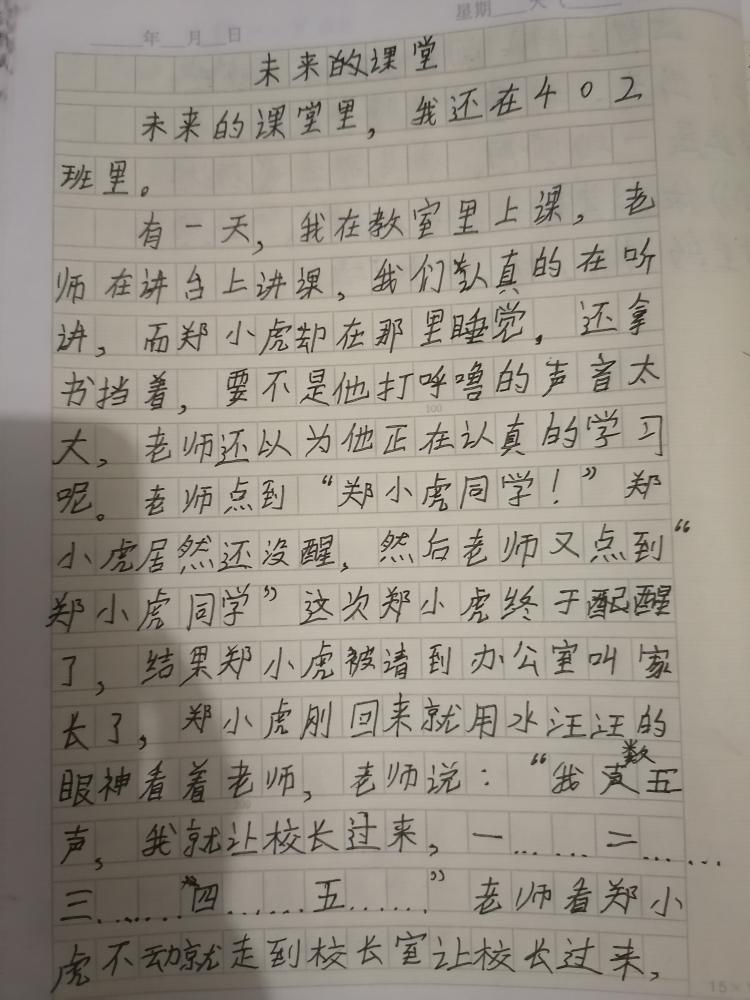 星期 天气
年 月 日
未来的课堂
未来的课堂里，我还在402
班里。
有一天，我在教室里上课，老
师在讲台上讲课，我们认真的在听
讲，而郑小虎却在那里睡觉，还拿
书挡着，要不是他打呼噜的声音太
大，老师还以为他正在认真的学习
呢。老师点到“郑小虎同学！”郑
小虎居然还没醒，然后老师又点到“
郑小虎同学”这次郑小虎终于醒
了，结果郑小虎被请到办公室叫家
长了，郑小虎刚回来就用水汪汪的
眼神看着老师，老师说：“我数五
声，我就让校长过来，一……二……
三……四……五……”老师看郑小
虎不动就走到校长室让校长过来，
100
200